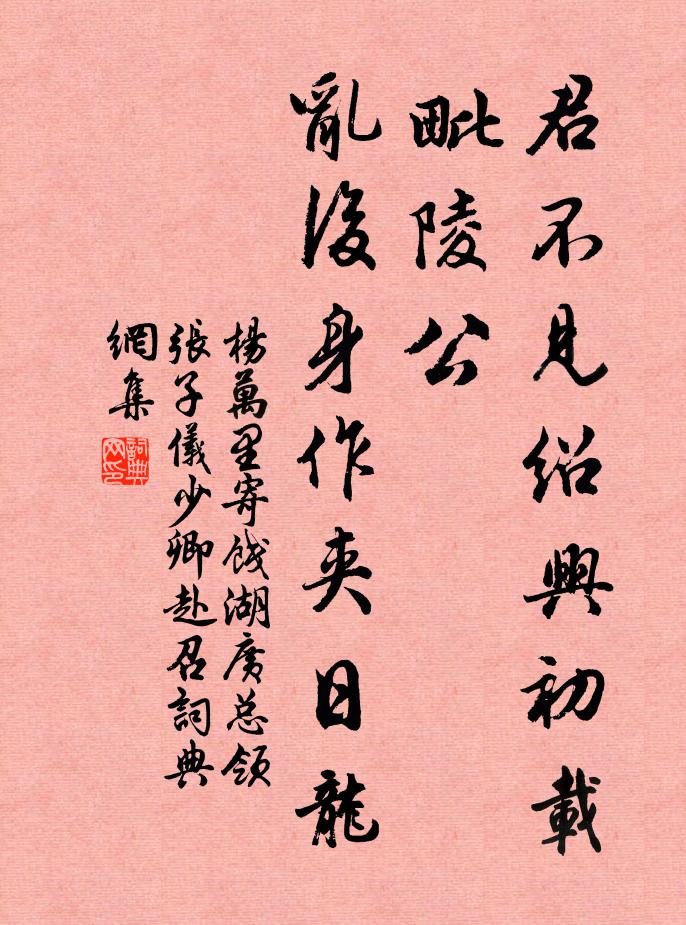 君不見紹興初載
毗陵公
亂後身作夾日龍
楊萬里寄餞湖廣总領
張子儀少卿赴召詞典
網集
詞典
网印